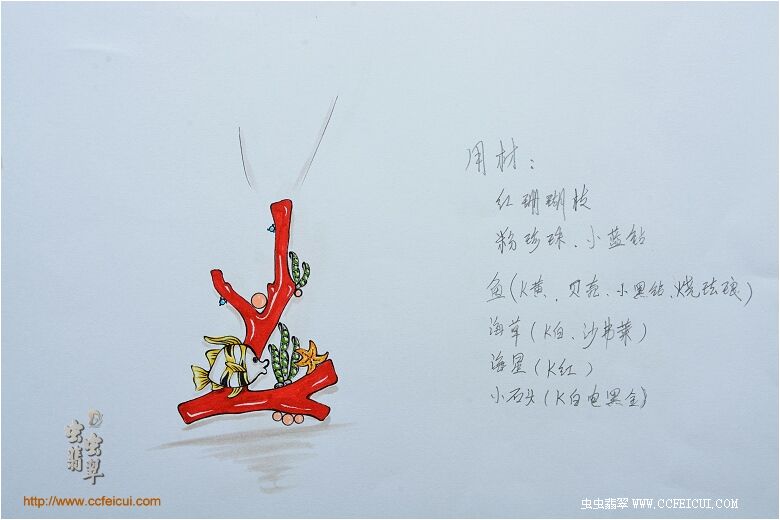 用材：
红珊瑚枝
粉珍珠、小蓝钻
鱼(K黄、贝壳、小黑钻、烧珐琅)
海草(K白、沙弗莱)
海星(K红)
小石头(K白电黑金)
虫虫翡翠
http://www.ccfeicui.com
虫虫翡翠 WWW.CCFEICUI.COM